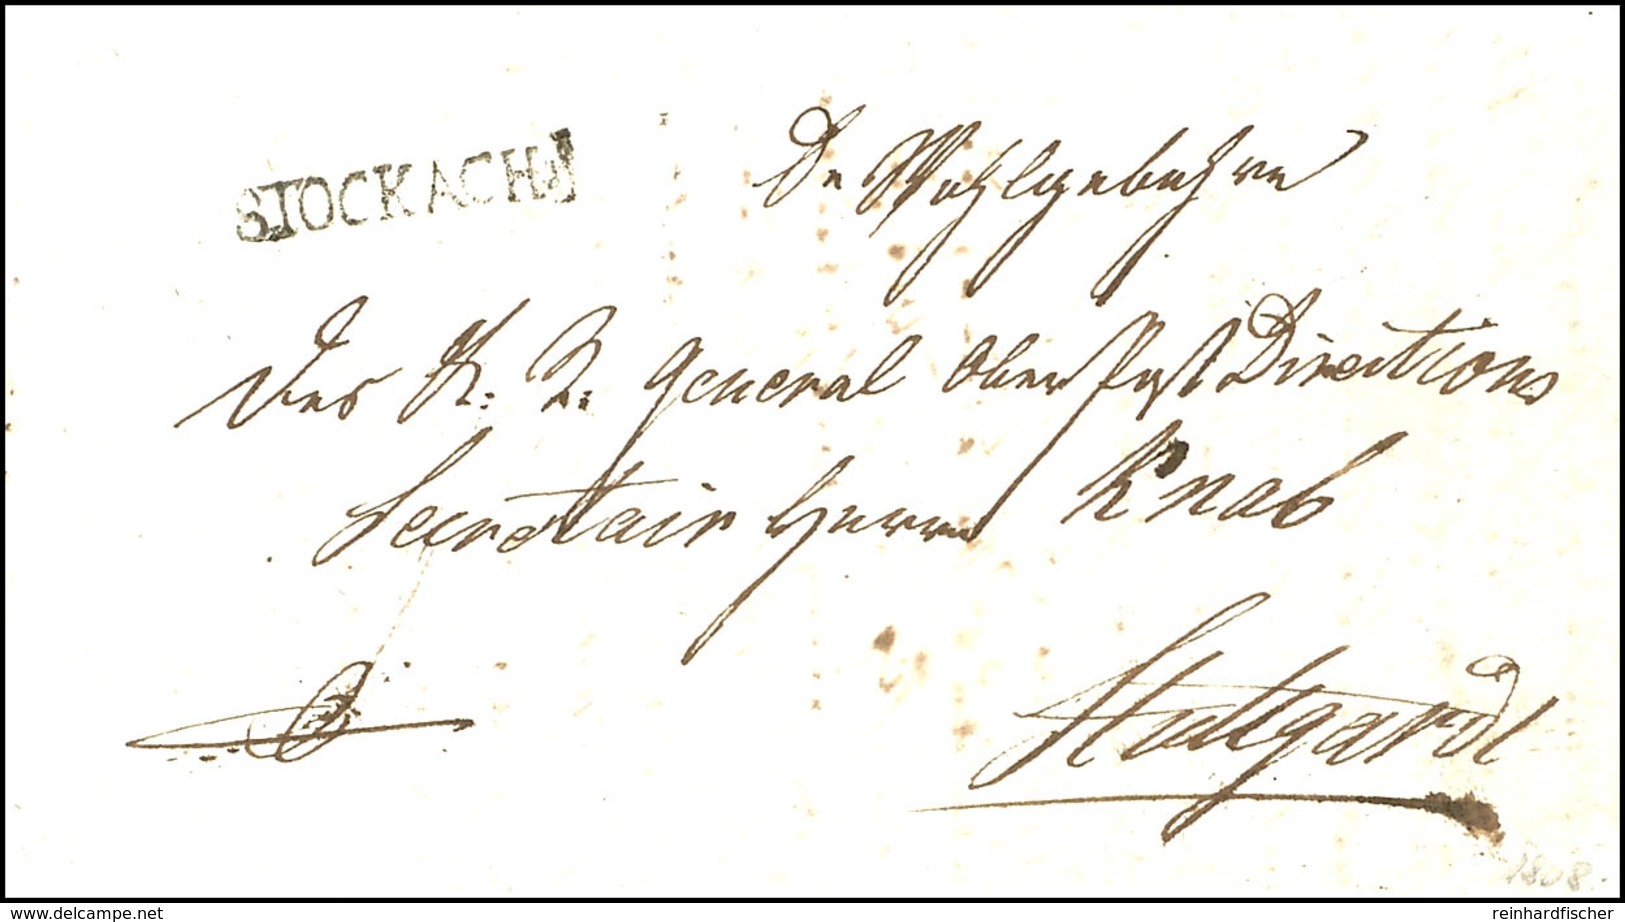 STOCKACH.
Sr Wohlgebohrn
Des K: R: General Ober Post Directions
Secretair Herrn Knab
Stuttgardt
1808
www.delcampe.net
reinhardfischer